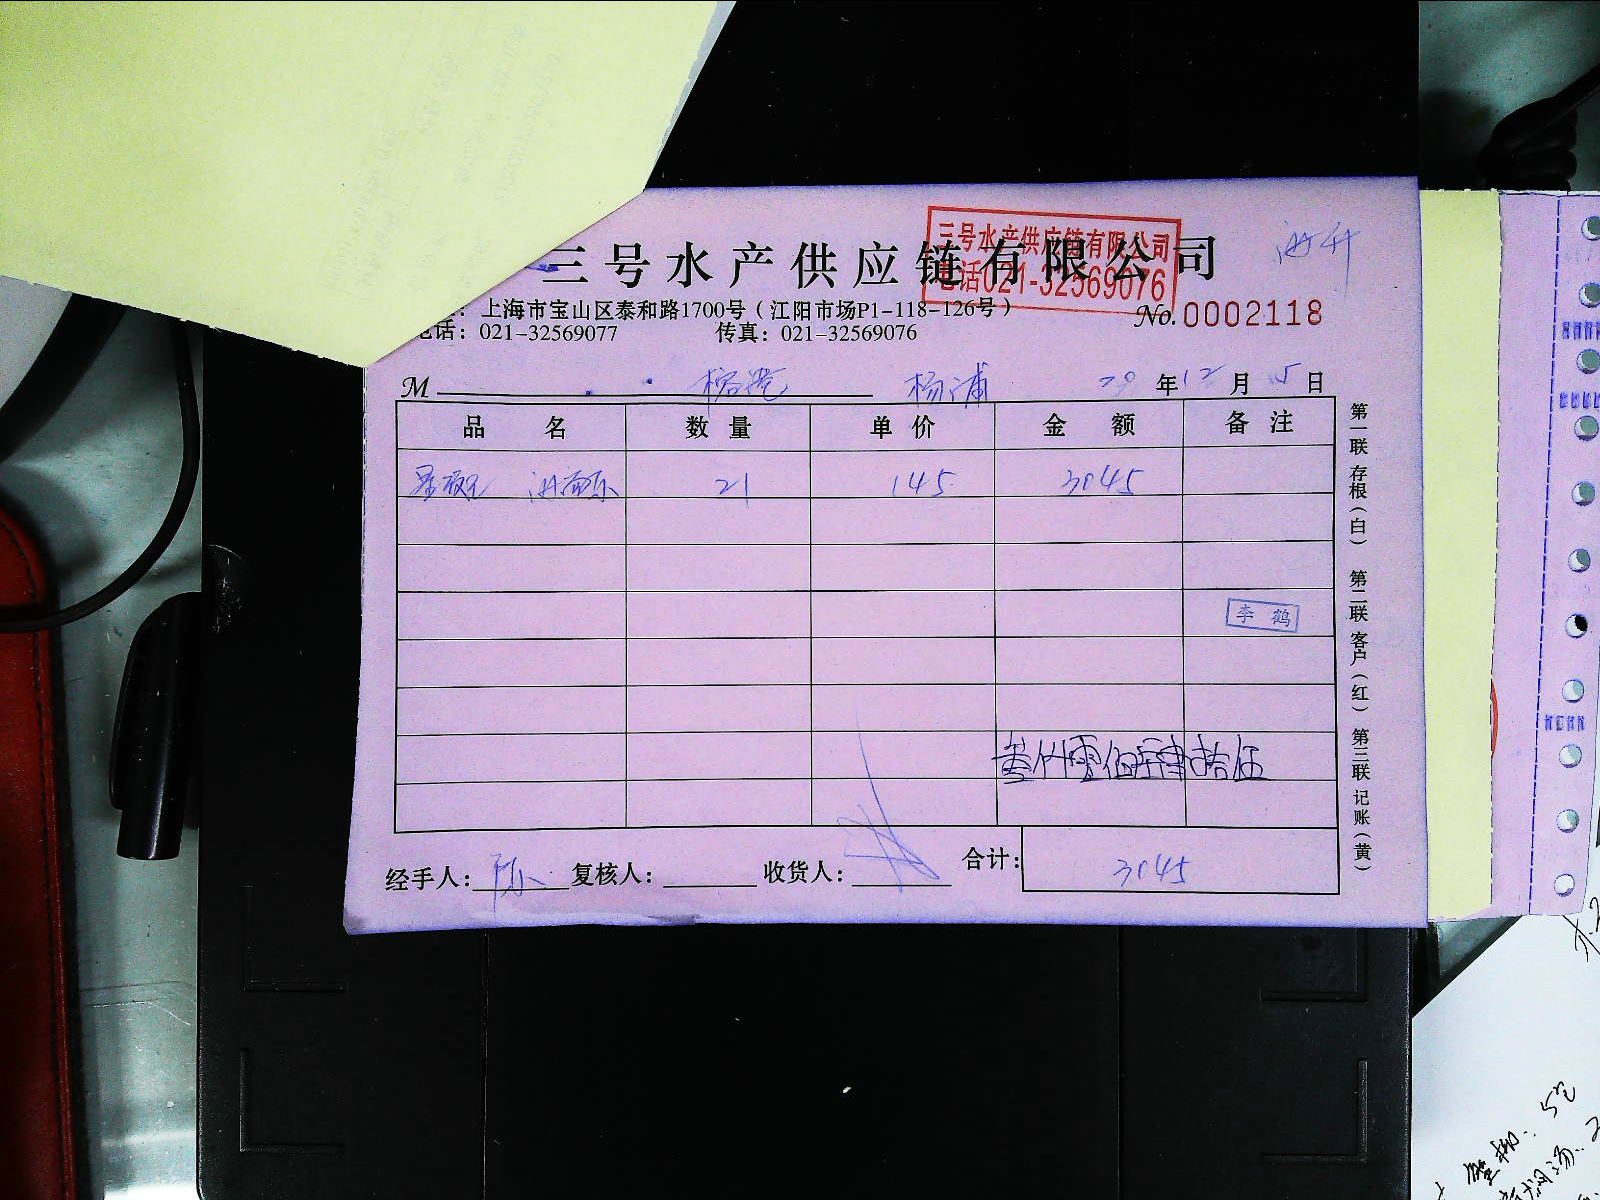 三号水产供应链有限公司
三号水产供应链有限公司
电话021-32569076
上海市宝山区泰和路1700号（江阳市场P1-118-126号）
No. 0002118
电话：021-32569077 传真：021-32569076
M 杨浦 20年12月15日
品名 数量 单价 金额 备注
21 145 3045
李鹤
叁仟零佰肆拾伍
经手人：陈 复核人： 收货人： 合计：3045
第一联 存根（白） 第二联 客户（红） 第三联 记账（黄）